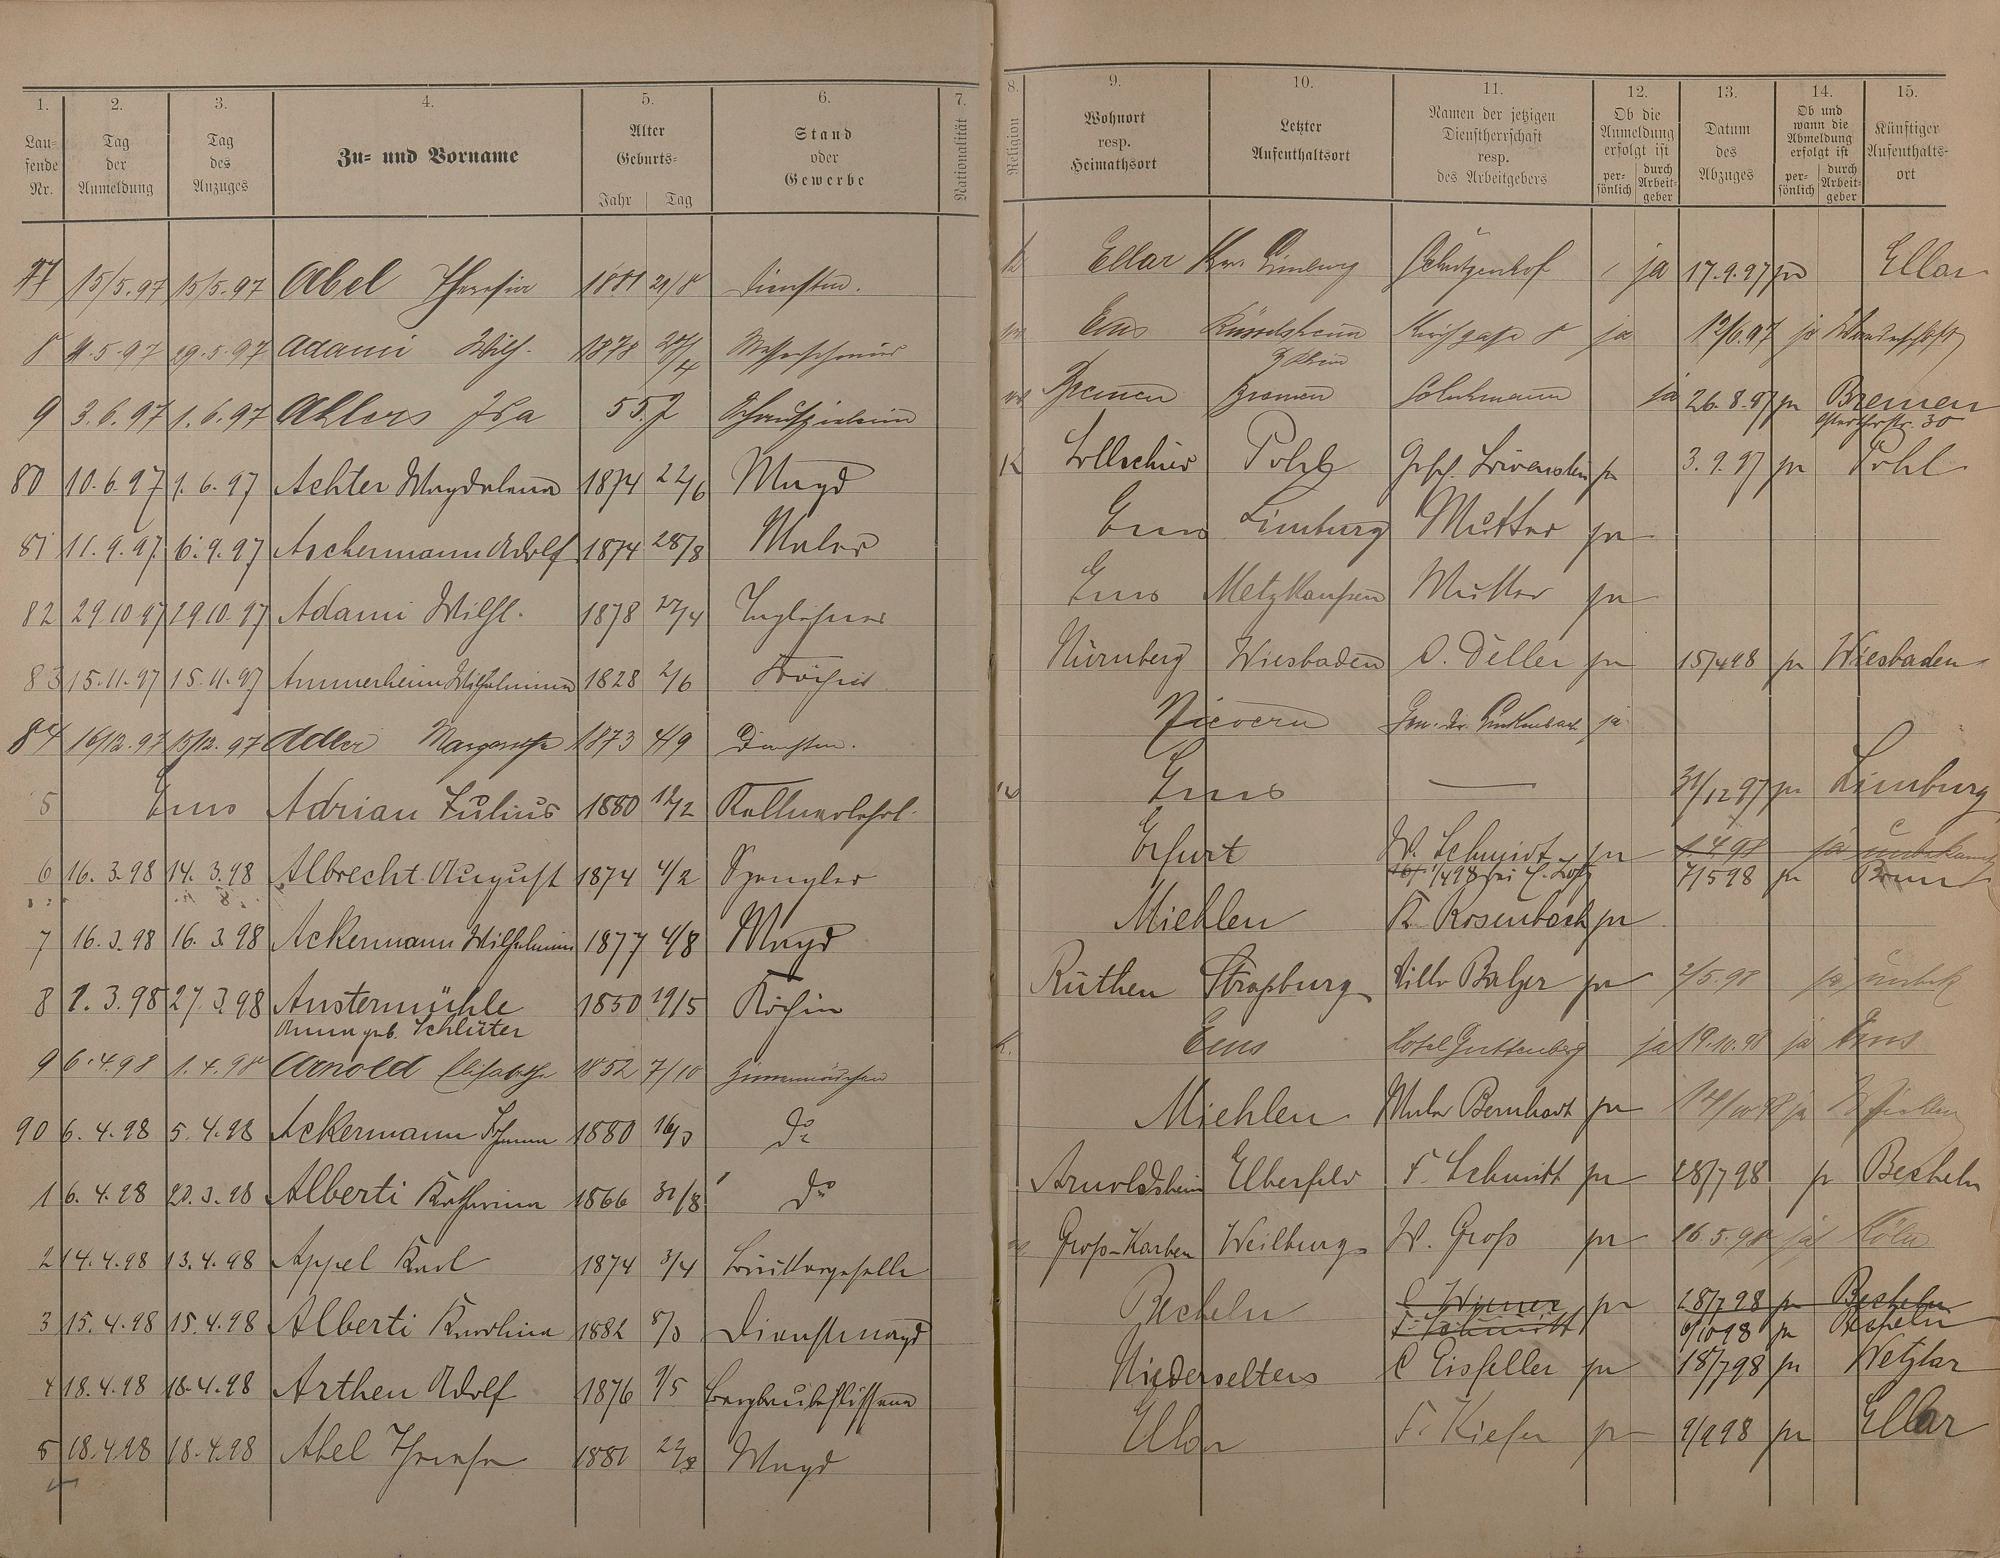 1. 2. 3. 4. 5. 6. 7. 8. 9. 10. 11. 12. 13. 14. 15.
Lau-
fende
Nr.
Tag
der
Anmeldung
Tag
des
Anzuges
Zu- und Vorname
Alter
Geburts-
Jahr Tag
Stand
oder
Gewerbe
Nationalität
Religion
Wohnort
resp.
Heimathsort
Letzter
Aufenthaltsort
Namen der jetzigen
Dienstherrschaft
resp.
des Arbeitgebers
Ob die
Anmeldung
erfolgt ist
per-
sönlich
durch
Arbeit-
geber
Datum
des
Abzuges
Ob und
wann die
Abmeldung
erfolgt ist
per-
sönlich
durch
Arbeit-
geber
Künftiger
Aufenthalts-
ort
77 15/5.97 15/5.97 Abel Theresia 1881 Dienstm. k Ellar Kr. Limburg Schützenhof ja 17.9.97 ja Ellar
8 29.5.97 Adami Wilh. 1878 27/4 Ems Rüsselsheim Kirchgasse 8 ja ja
9 3.6.97 1.6.97 Ahlers Ida 55 J Schauspielerin Bremen Bremen ja 26.8.97 ja Bremen
80 10.6.97 1.6.97 Achter Magdalena 1874 22/6 Magd K Pohl Gesch. Löwenstein ja 3.9.97 ja Pohl
81 11.9.97 6.9.97 Aschermann Adolf 1874 28/8 Maler Ems Limburg Mutter ja
82 29.10.97 29.10.97 Adami Wilh. 1878 27/4 Taglöhner Ems Mutter ja
83 15.11.97 15.11.97 Ammerheim Wilhelmina 1828 2/6 Köchin Nürnberg Wiesbaden ja 15/4 98 ja Wiesbaden
84 16/12.97 15/12.97 Adler Margarethe 1873 4/9 Dienstm. Nievern ja
5 Ems Adrian Julius 1880 12/2 Kellnerlehrl. Ems — 31/12 97 ja Limburg
6 16.3.98 14.3.98 Albrecht August 1874 4/2 Spengler Erfurt W. Schmidt ja 1.4.98 ja unbekannt
7/5 98 ja
7 16.3.98 16.3.98 Ackermann Wilhelmine 1877 4/8 Magd Miehlen K. Rosenbach ja
8 1.3.98 27.3.98 Austermühle 1850 19/5 Köchin Rüthen Straßburg Villa Balzer ja 2/5.98 ja unbek
Anna geb. Schlüter
9 6.4.98 1.4.98 Arnold Elisabethe 1852 7/10 Zimmermädchen k. Ems Hotel Guttenberg ja 19.10.98 ja Ems
90 6.4.98 5.4.98 Ackermann 1880 16/3 do Miehlen Maler Bernhardt ja ja
1 6.4.98 Alberti Katharina 1866 31/8 do Arnoldshain Elberfeld F. Schmitt ja 28/7 98 ja Becheln
2 14.4.98 13.4.98 Appel Karl 1874 3/4 Groß-Karben Weilburg W. Groß ja 16.5.98 ja Köln
3 15.4.98 15.4.98 Alberti Karolina 1882 8/3 Dienstmagd Becheln C Wiener ja 28/7 98 ja Becheln
F. Schmitt 6/10 98 ja Becheln
4 18.4.98 18.4.98 Arthen Adolf 1876 9/5 Bergbaubeflissener Niederselters C Eisfeller ja 18/7 98 ja Wetzlar
5 18.4.98 18.4.98 Abel Therese 1881 Magd Ellar F. Kiefer ja 9/9 98 ja Ellar